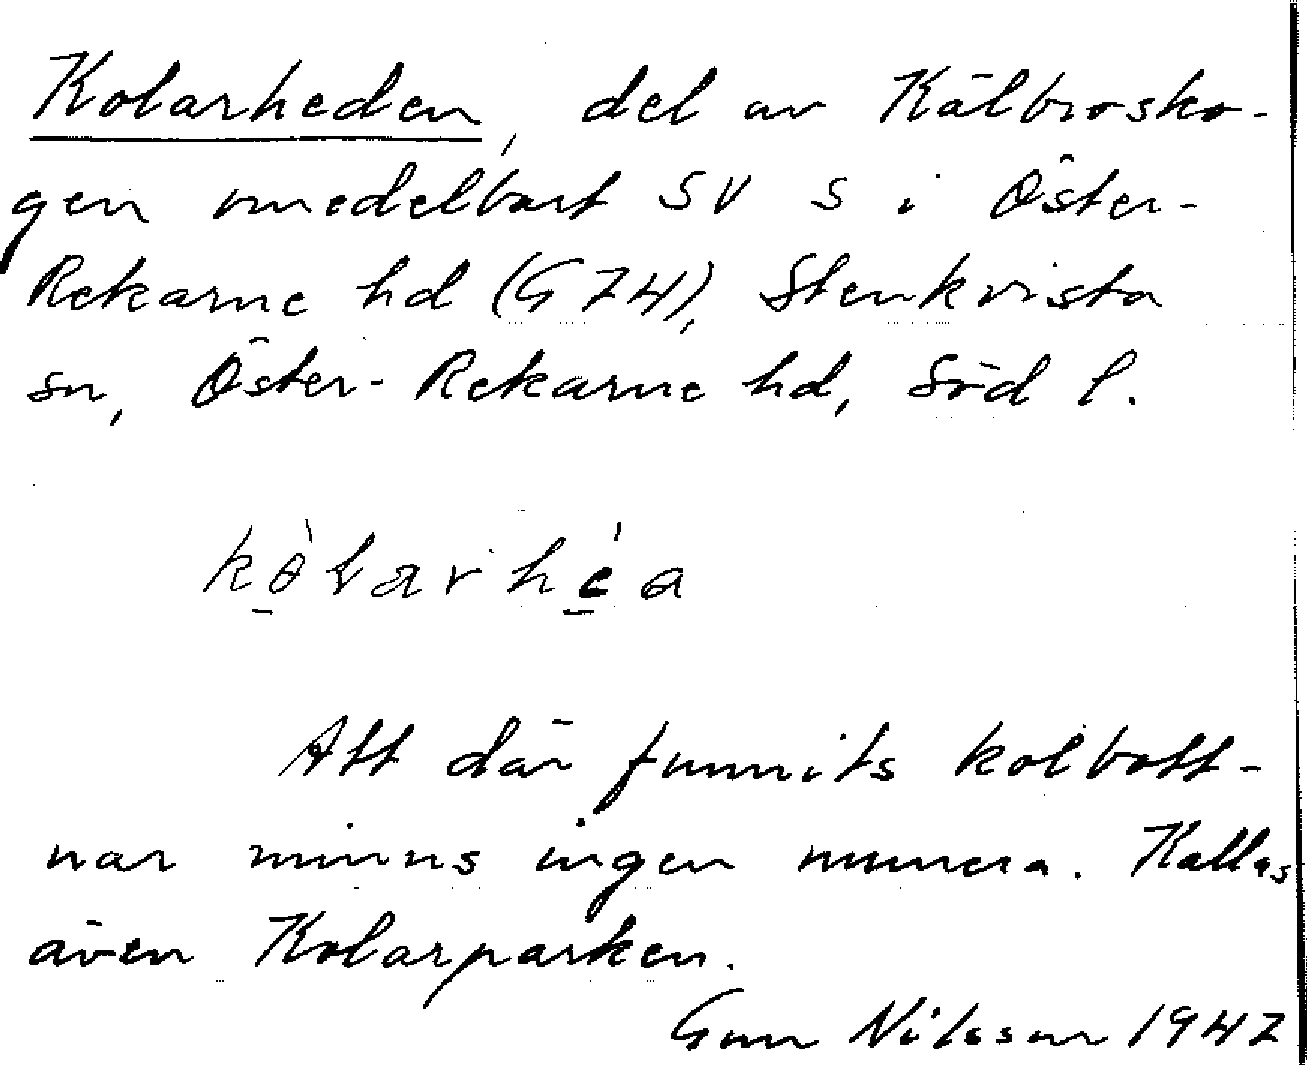 Kolarheden, del av Kälbrosko-
gen omedelbart SV S i Öster-
Rekarne hd (G 74), Stenkvista
sn, Öster-Rekarne hd, Söd l.
Att där funnits kolbott-
nar minns ingen numera. Kallas
även Kolarparken.
Gun Nilsson 1947